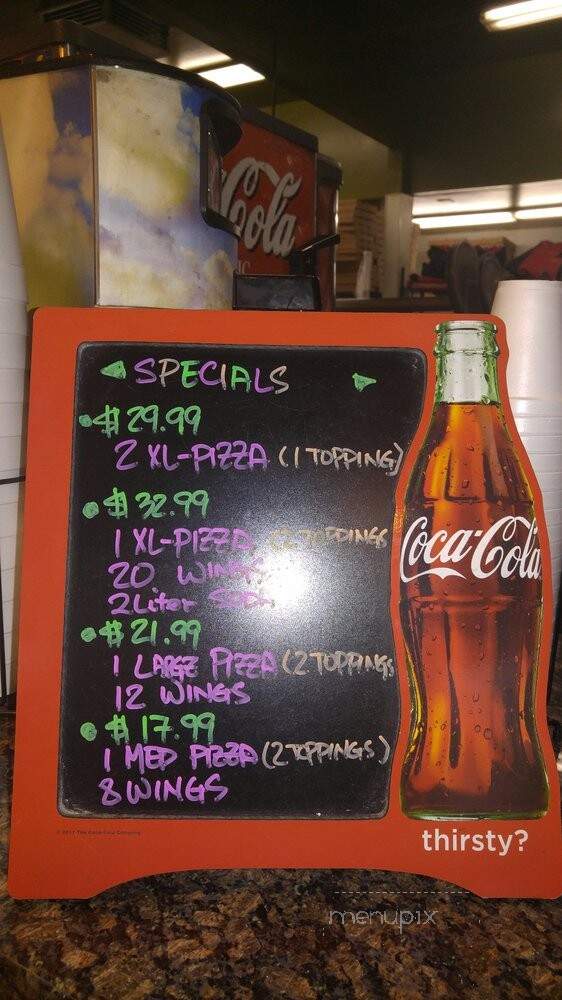 Cola
SPECIALS
$29.99
2 XL-PIZZA (1 TOPPING)
$32.99
1 XL-PIZZA (2 TOPPINGS
20 WINGS
2 Liter Soda
$21.99
1 LARGE PIZZA (2 TOPPINGS
12 WINGS
$17.99
1 MED PIZZA (2 TOPPINGS)
8 WINGS
Coca-Cola
© 2017 The Coca-Cola Company
thirsty?
menupix